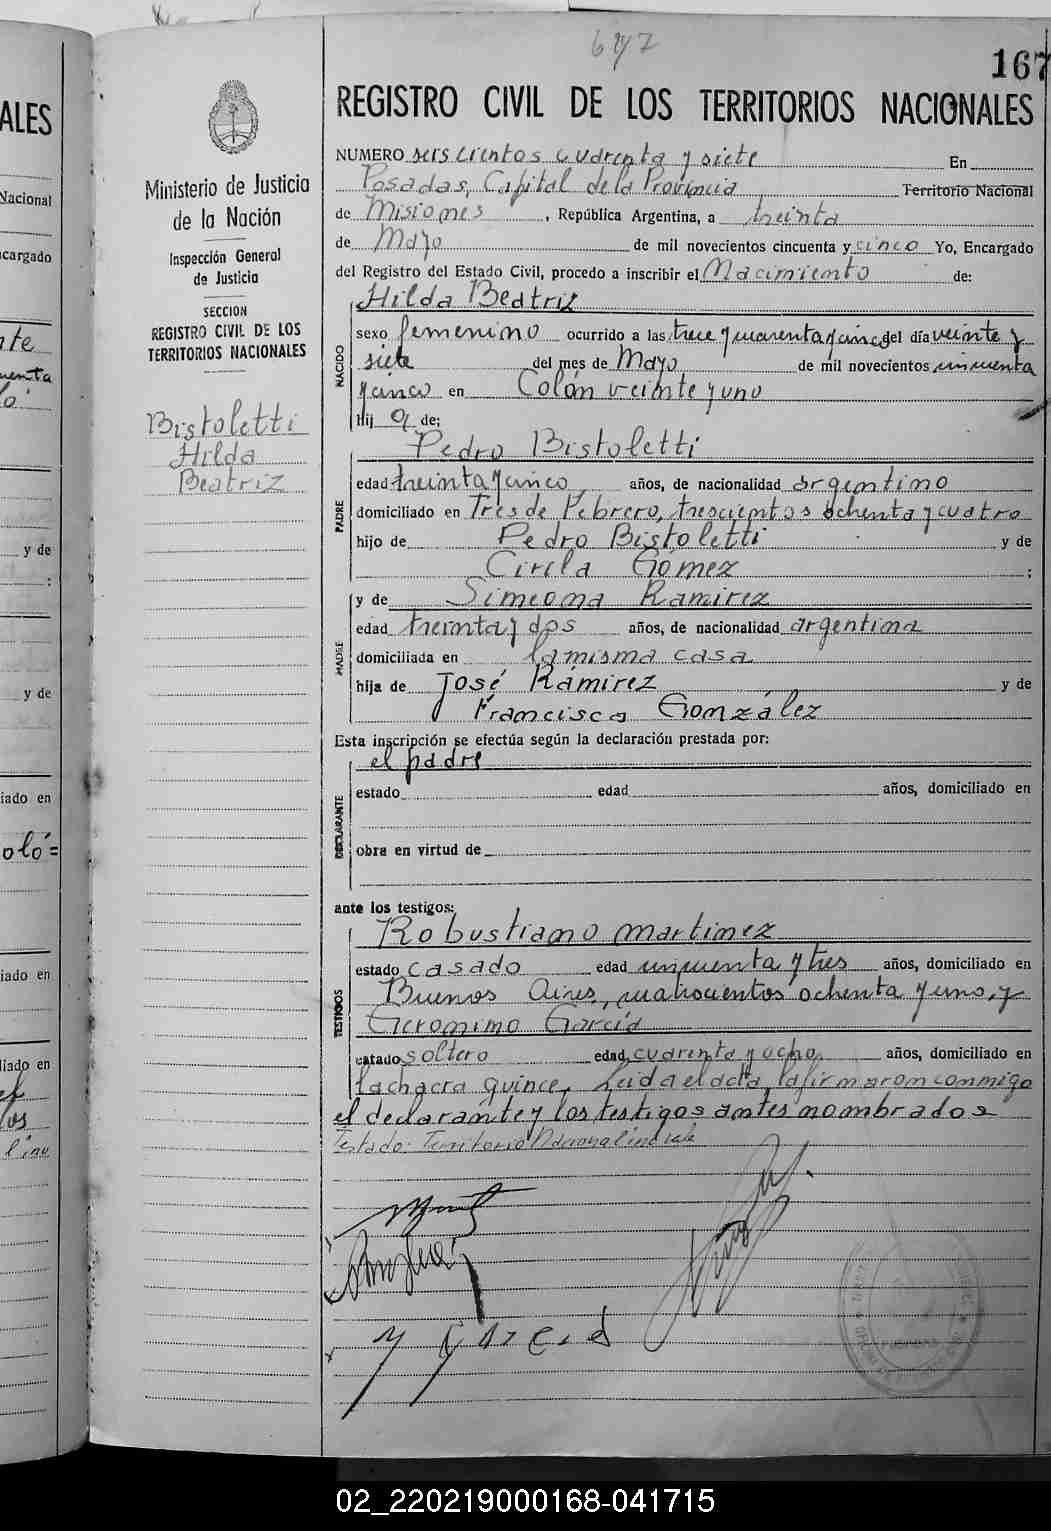 647
167
REGISTRO CIVIL DE LOS TERRITORIOS NACIONALES
Ministerio de Justicia
de la Nación
Inspección General
de Justicia
SECCION
REGISTRO CIVIL DE LOS
TERRITORIOS NACIONALES
Bistoletti
Hilda
Beatriz
NUMERO seiscientos cuarenta y siete En
Posadas, Capital de la Provincia Territorio Nacional
de Misiones, República Argentina, a treinta
de Mayo de mil novecientos cincuenta y cinco Yo, Encargado
del Registro del Estado Civil, procedo a inscribir el Nacimiento de:
NACIDO
Hilda Beatriz
sexo femenino ocurrido a las trece y cuarenta y cinco del día veinte y
siete del mes de Mayo de mil novecientos cincuenta
y cinco en Colón veinte y uno
Hij a de:
PADRE
Pedro Bistoletti
edad treinta y cinco años, de nacionalidad argentino
domiciliado en Tres de Febrero, trescientos ochenta y cuatro
hijo de Pedro Bistoletti y de
Cirila Gómez ;
MADRE
y de Simeona Ramirez
edad treinta y dos años, de nacionalidad argentina
domiciliada en la misma casa
hija de José Ramirez y de
Francisca González
Esta inscripción se efectúa según la declaración prestada por:
DECLARANTE
el padre
estado edad años, domiciliado en
obra en virtud de
ante los testigos:
TESTIGOS
Robustiano Martinez
estado casado edad cincuenta y tres años, domiciliado en
Buenos Aires, cuatrocientos ochenta y uno, y
Geronimo García
estado soltero edad cuarenta y ocho años, domiciliado en
la chacra quince. Leida el acta, la firmaron conmigo
el declarante y los testigos antes nombrados
Testado: Territorio Nacional: no vale
ALES
Nacional
cargado
y de
:
y de
iado en
iado en
liado en
02_220219000168-041715